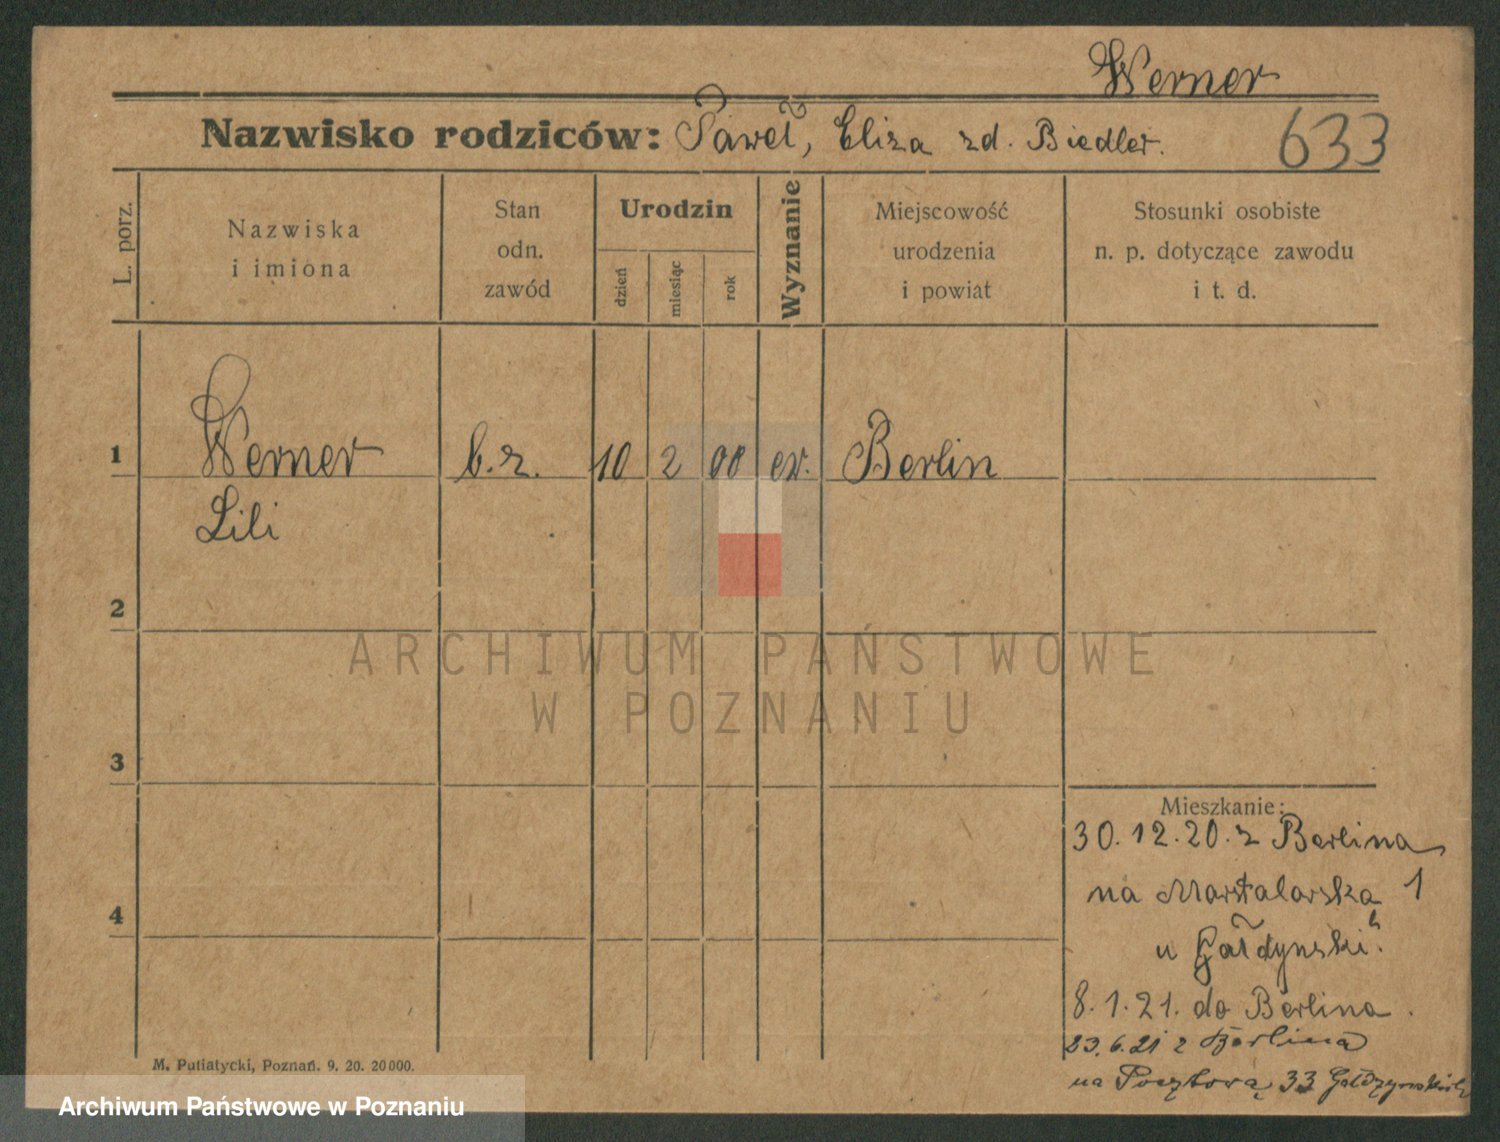 Werner
Nazwisko rodziców: Paweł, Eliza zd. Biedler.
633
L. porz.
Nazwiska
i imiona
Stan
odn.
zawód
Urodzin
dzień
miesiąc
rok
Wyznanie
Miejscowość
urodzenia
i powiat
Stosunki osobiste
n. p. dotyczące zawodu
i t. d.
1 Werner b.z. 10 2 00 ew. Berlin
Lili
2
3
4
Mieszkanie:
30.12.20. z Berlina
na Masztalarska 1
u Gałdyński
8.1.21. do Berlina.
23.6.21 z Berlina
na Pocztową 33
M. Putiatycki, Poznań. 9. 20. 20 000.
ARCHIWUM PAŃSTWOWE
W POZNANIU
Archiwum Państwowe w Poznaniu